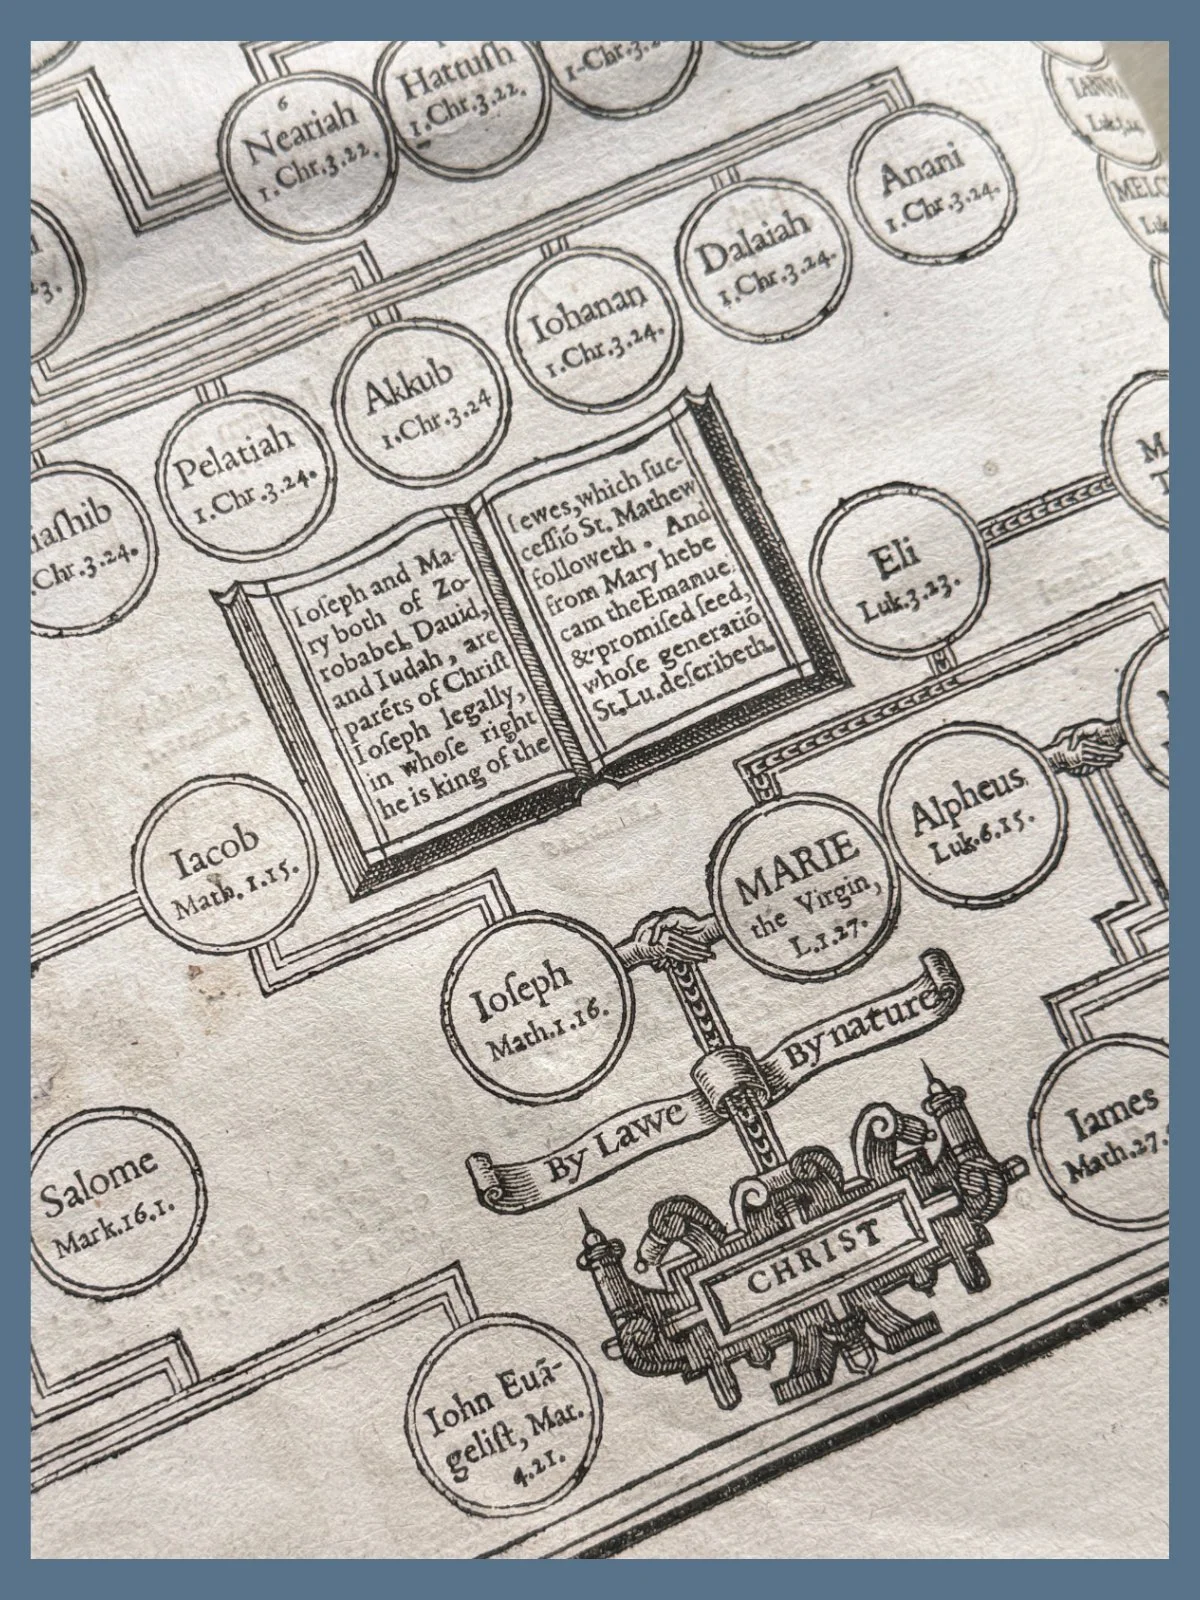 6
Neariah
1.Chr.3.22.
Hattuſh
1.Chr.3.22.
1-Chr.3.
IANNA
Luk.3.24
MELC
Luk
Anani
1.Chr.3.24.
Dalaiah
1.Chr.3.24.
Iohanan
1.Chr.3.24.
Akkub
1.Chr.3.24
Pelatiah
1.Chr.3.24.
iaſhib
.Chr.3.24.
23.
Ioſeph and Ma-
ry both of Zo-
robabel, Dauid,
and Iudah, are
parẽts of Chriſt
Ioſeph legally,
in whoſe right
he is king of the
Iewes, which ſuc-
ceſſiõ St. Mathew
followeth. And
from Mary hebe
cam the Emanue.
& promiſed ſeed,
whoſe generatiõ
St. Lu. deſcribeth.
Eli
Luk.3.23.
M
Alpheus
Luk.6.15.
MARIE
the Virgin,
L.1.27.
Iacob
Math. 1.15.
Ioſeph
Math.1.16.
By nature
By Lawe
CHRIST
Iames
Math.27.
Salome
Mark.16.1.
Iohn Euã-
geliſt, Mar.
4.21.